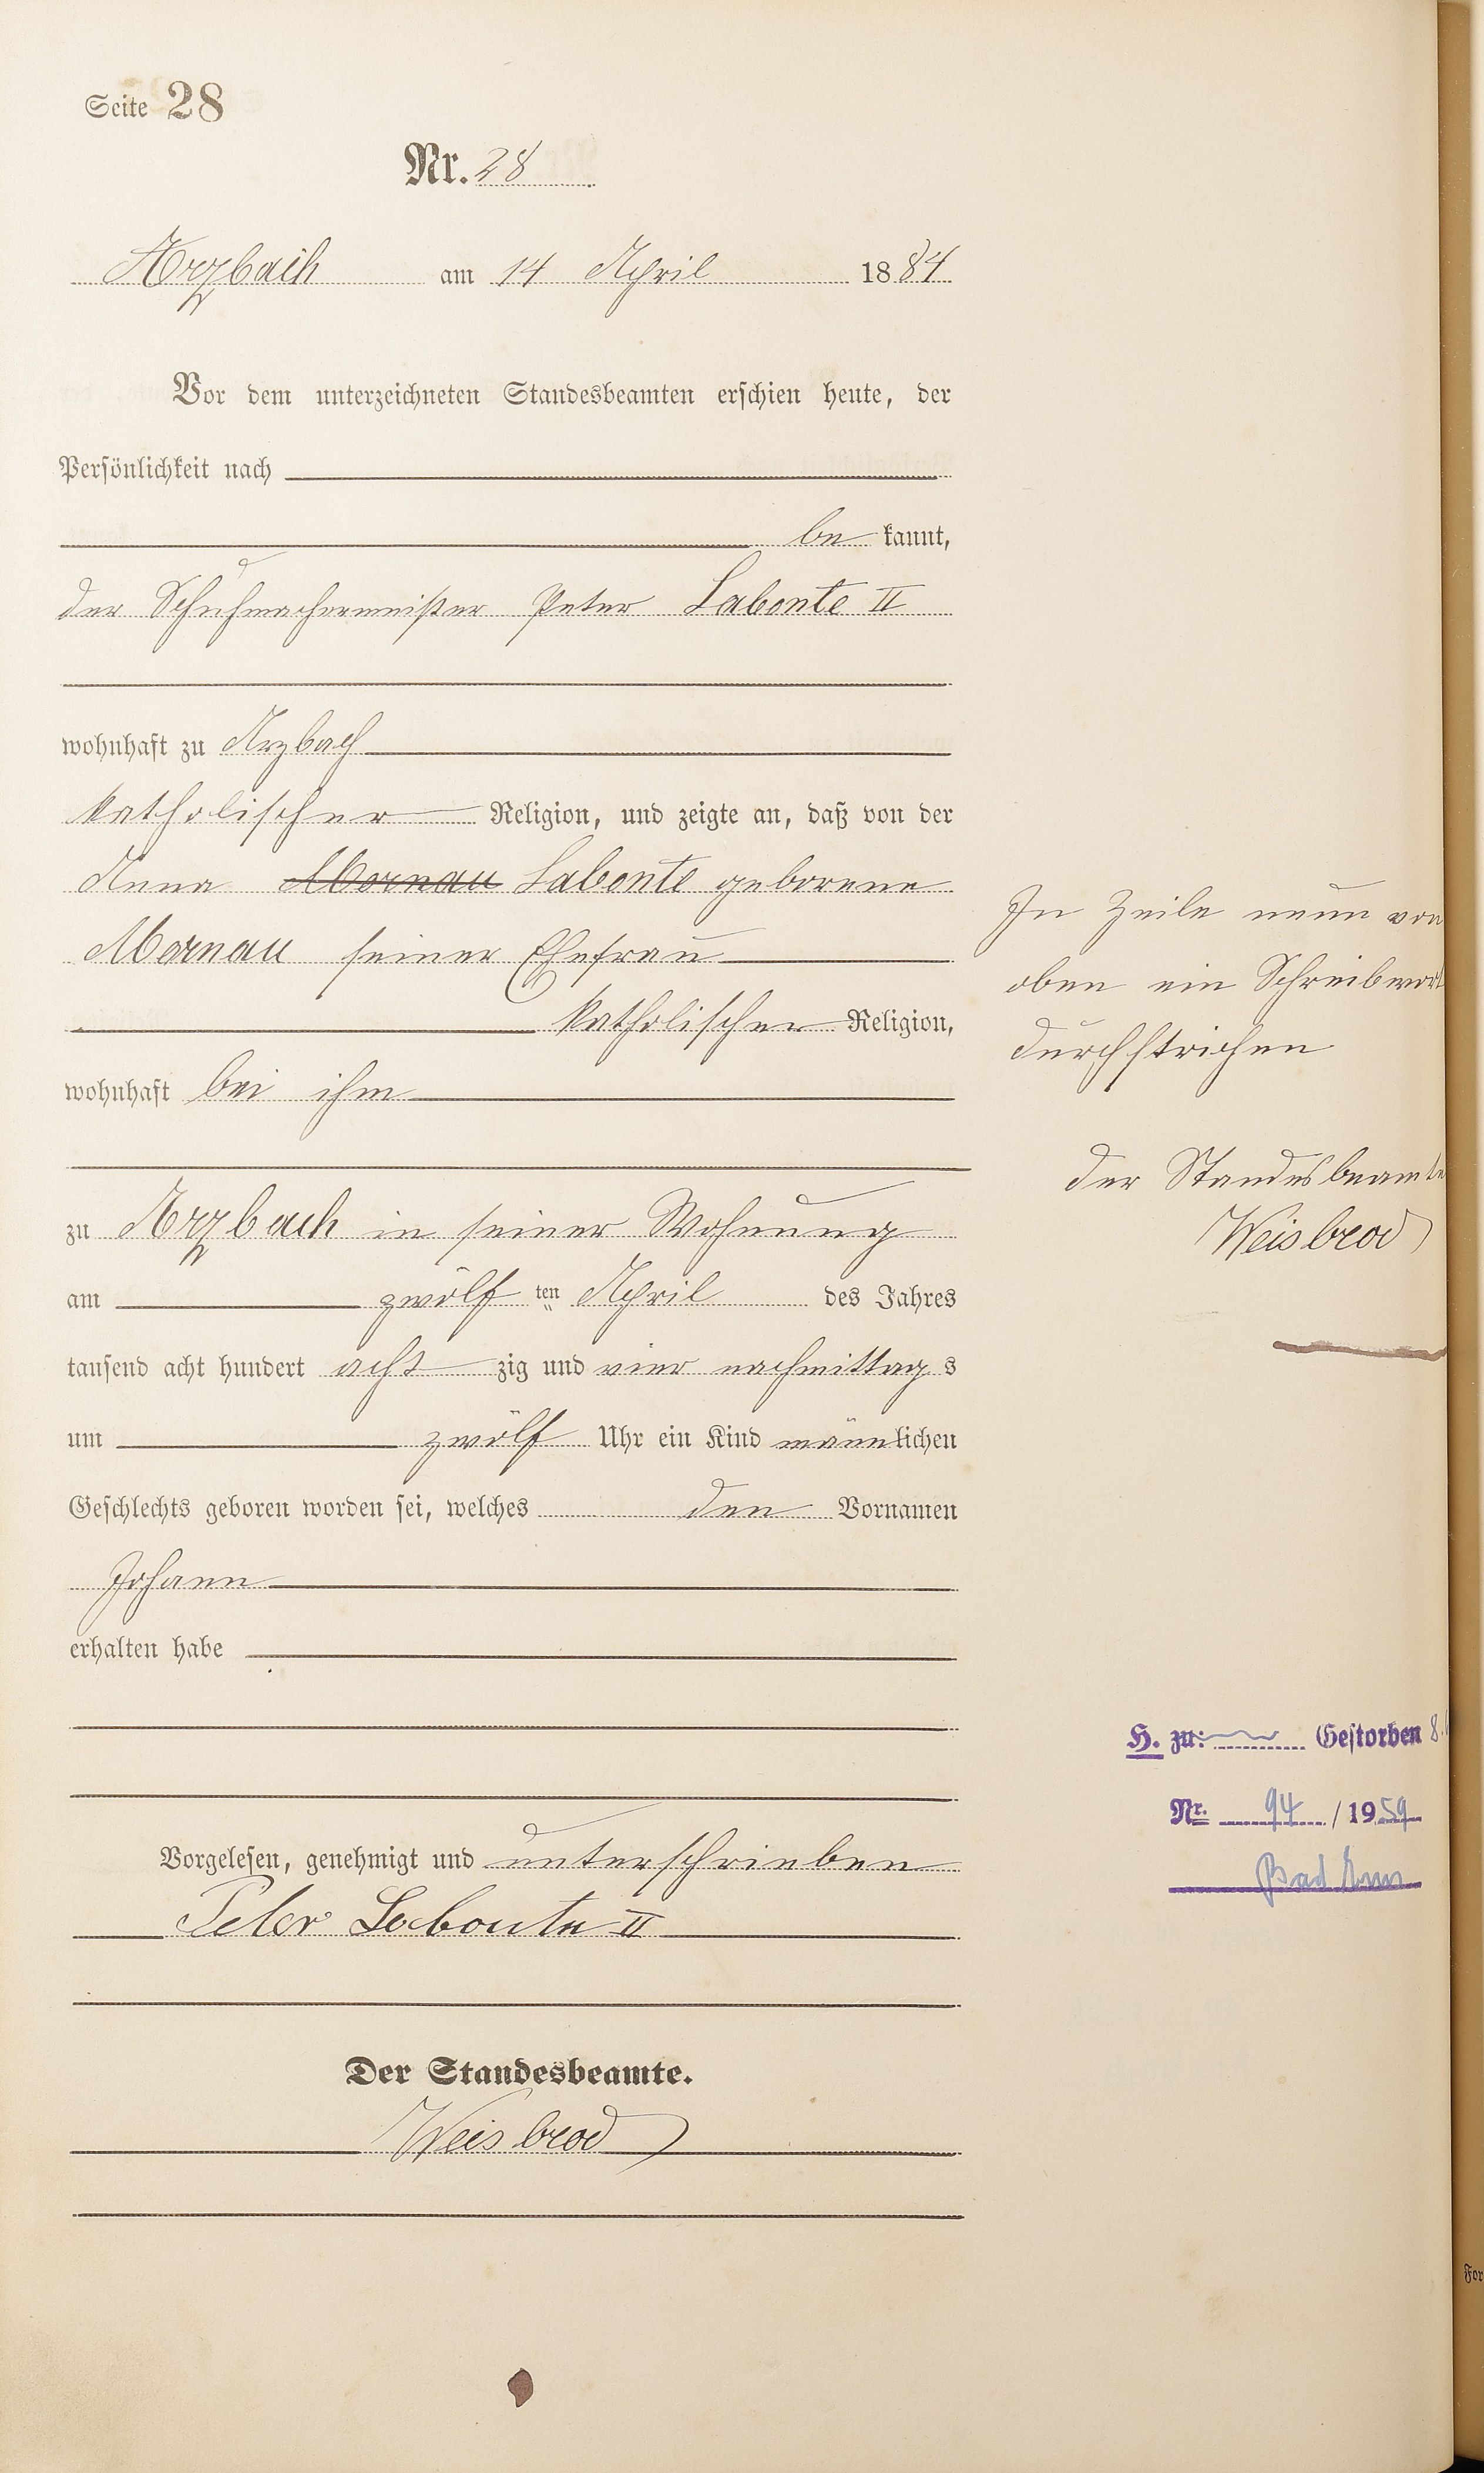 Seite 28
Nr. 28
Arzbach am 14 April 1884
Vor dem unterzeichneten Standesbeamten erschien heute, der
Persönlichkeit nach
be kannt,
der Schuhmachermeister Peter Labonte II
wohnhaft zu Arzbach
katholischer Religion, und zeigte an, daß von der
Anna Mornau Labonte geborene
Mornau seiner Ehefrau
katholischer Religion,
wohnhaft bei ihm
zu Arzbach in seiner Wohnung
am zwölf ten April des Jahres
tausend acht hundert acht zig und vier nachmittag s
um zwölf Uhr ein Kind männlichen
Geschlechts geboren worden sei, welches den Vornamen
Johann
erhalten habe
Vorgelesen, genehmigt und unterschrieben
Peter Labonte II
Der Standesbeamte.
Weisbrod
In Zeile neun von
oben ein Schreibwort
durchstrichen
der Standesbeamte
Weisbrod
H. zu: Gestorben 8.
Nr. 94 / 1959
Bad Ems
For